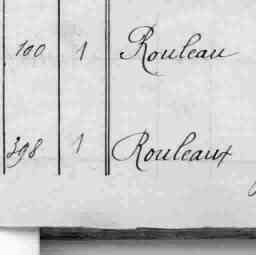 100 1 Rouleau
398 1 Rouleaux